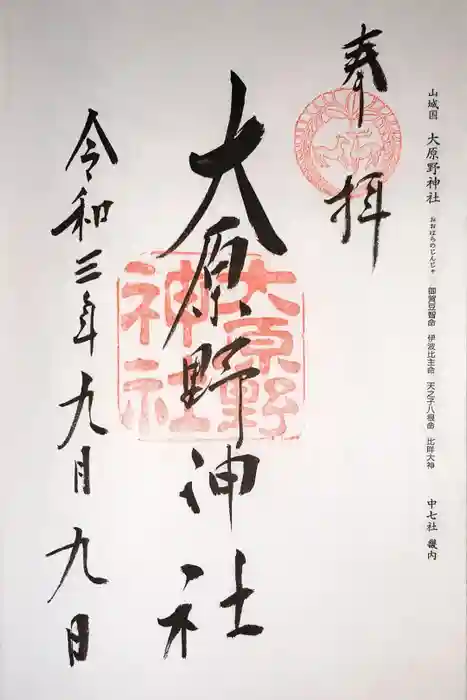 山城国 大原野神社 おおはらのじんじゃ 御賀豆智命 伊波比主命 天之子八根命 比咩大神 中七社 畿内
奉拝
大原野神社
大原野神社
令和三年九月九日